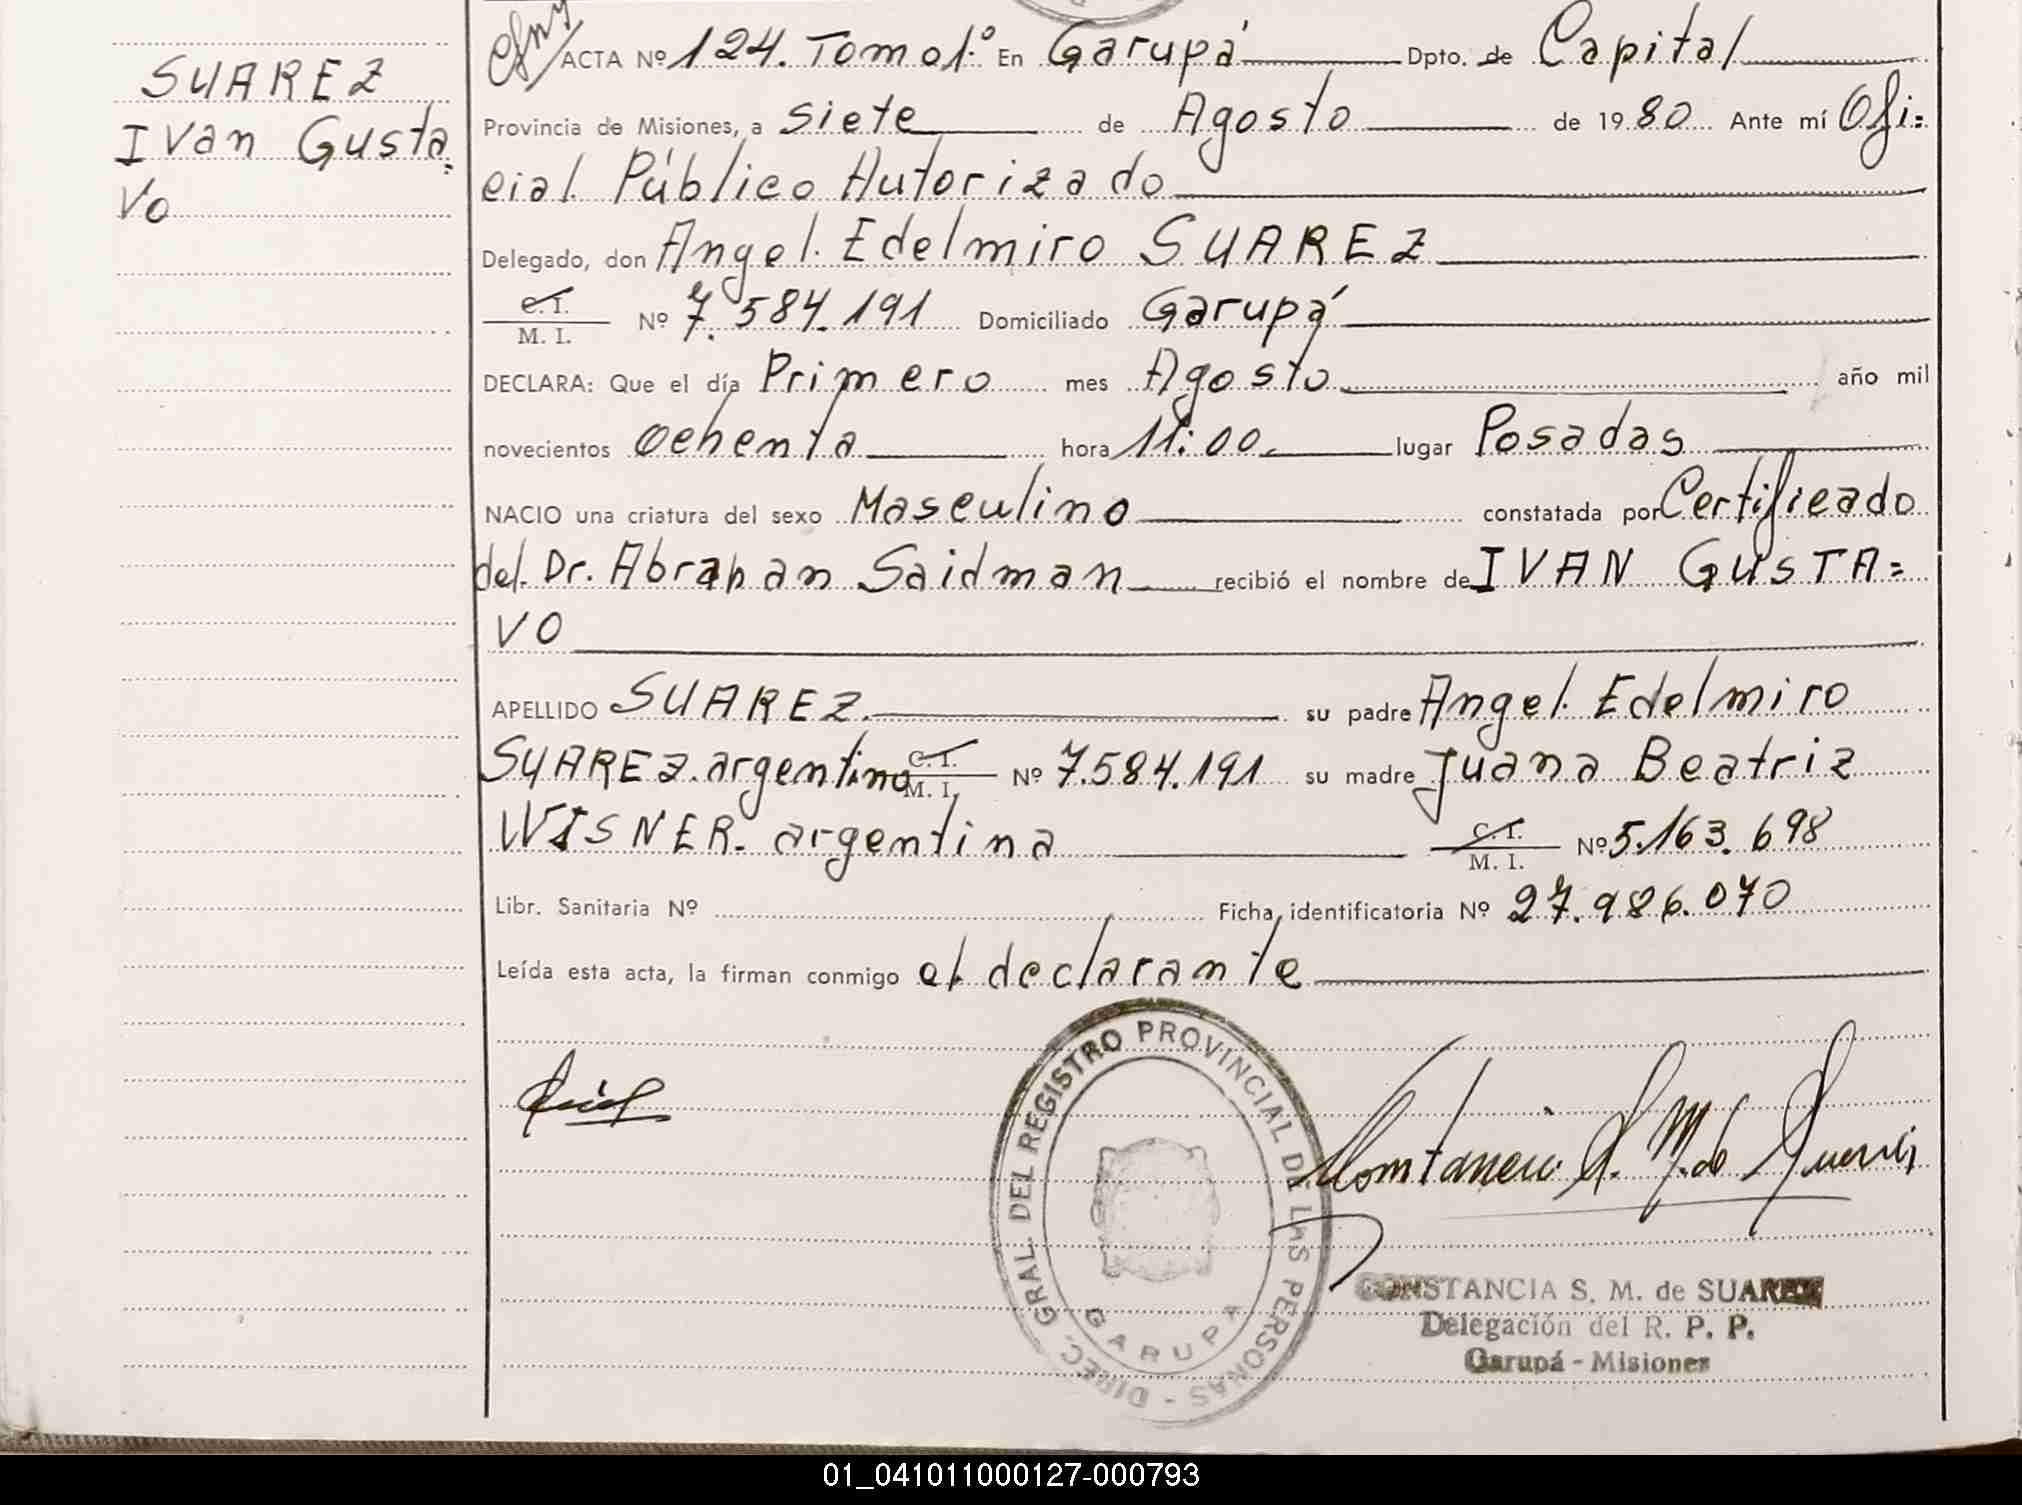 SUAREZ
Ivan Gusta=
vo
ACTA Nº 124. Tomo 1.º En Garupá Dpto. de Capital
Provincia de Misiones, a siete de Agosto de 1980 Ante mí Ofi=
cial Público Autorizado
Delegado, don Angel Edelmiro SUAREZ
C. I.
M. I.
Nº 7.584.191 Domiciliado Garupá
DECLARA: Que el día Primero mes Agosto año mil
novecientos ochenta hora 11:00 lugar Posadas
NACIO una criatura del sexo Masculino constatada por Certificado
del Dr. Abrahan Saidman recibió el nombre de IVAN GUSTA=
VO
APELLIDO SUAREZ su padre Angel Edelmiro
SUAREZ. argentino C. I. M. I. Nº 7.584.191 su madre Juana Beatriz
WISNER. argentina C. I. M. I. Nº 5.163.698
Libr. Sanitaria Nº Ficha identificatoria Nº 27.986.070
Leída esta acta, la firman conmigo el declarante
DIREC. GRAL. DEL REGISTRO PROVINCIAL DE LAS PERSONAS -
GARUPA
CONSTANCIA S. M. de SUAREZ
Delegación del R. P. P.
Garupá - Misiones
01_041011000127-000793